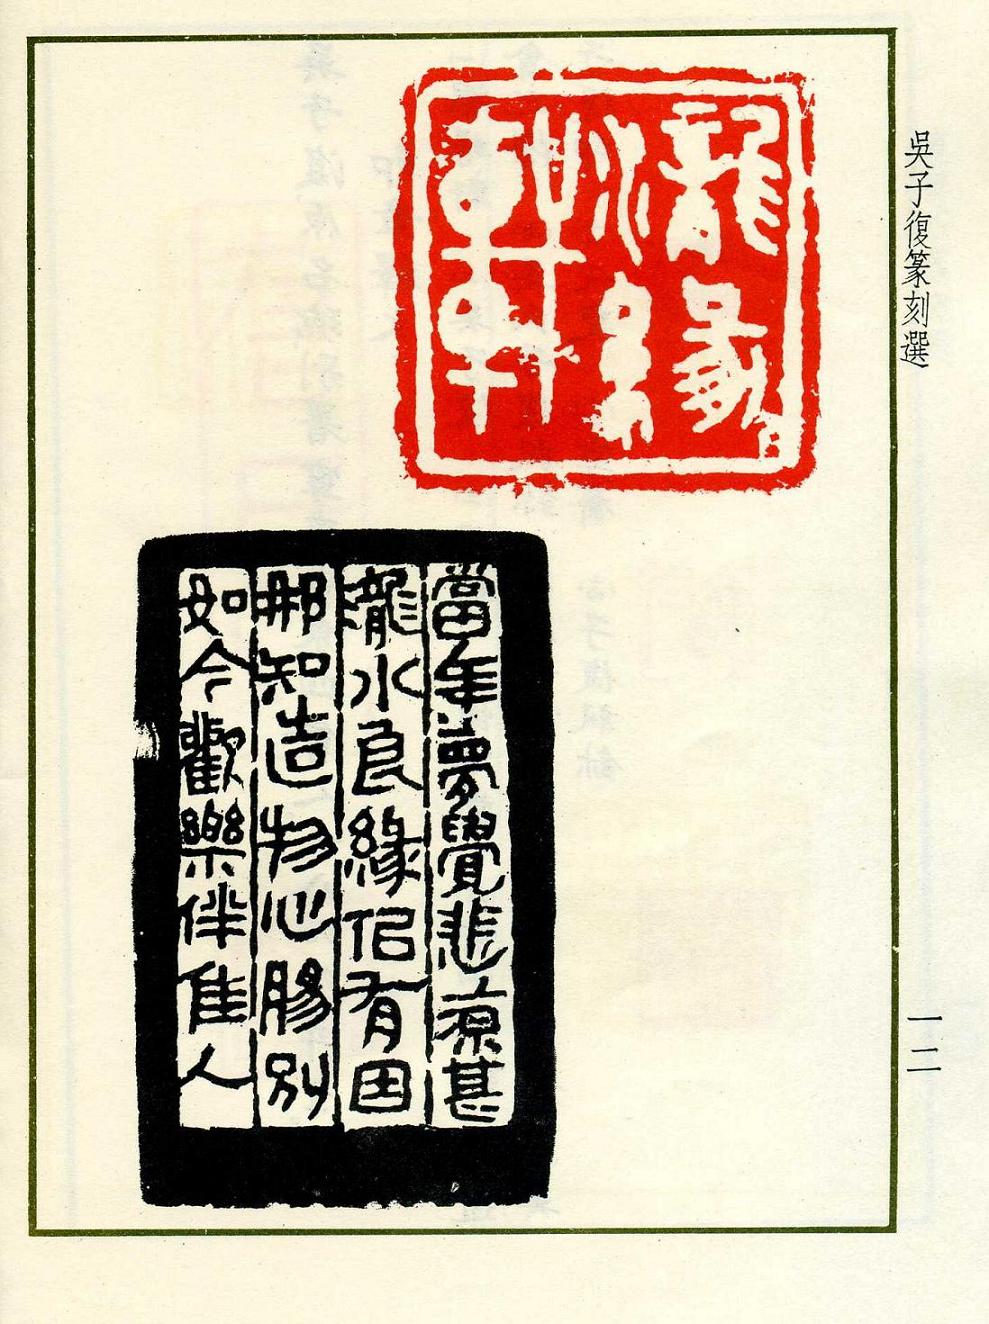 吳子復篆刻選
瀧緣軒
當年夢覺悲涼甚
瀧水良緣侣有因
那知造物心腸別
如今歡樂伴佳人
一二